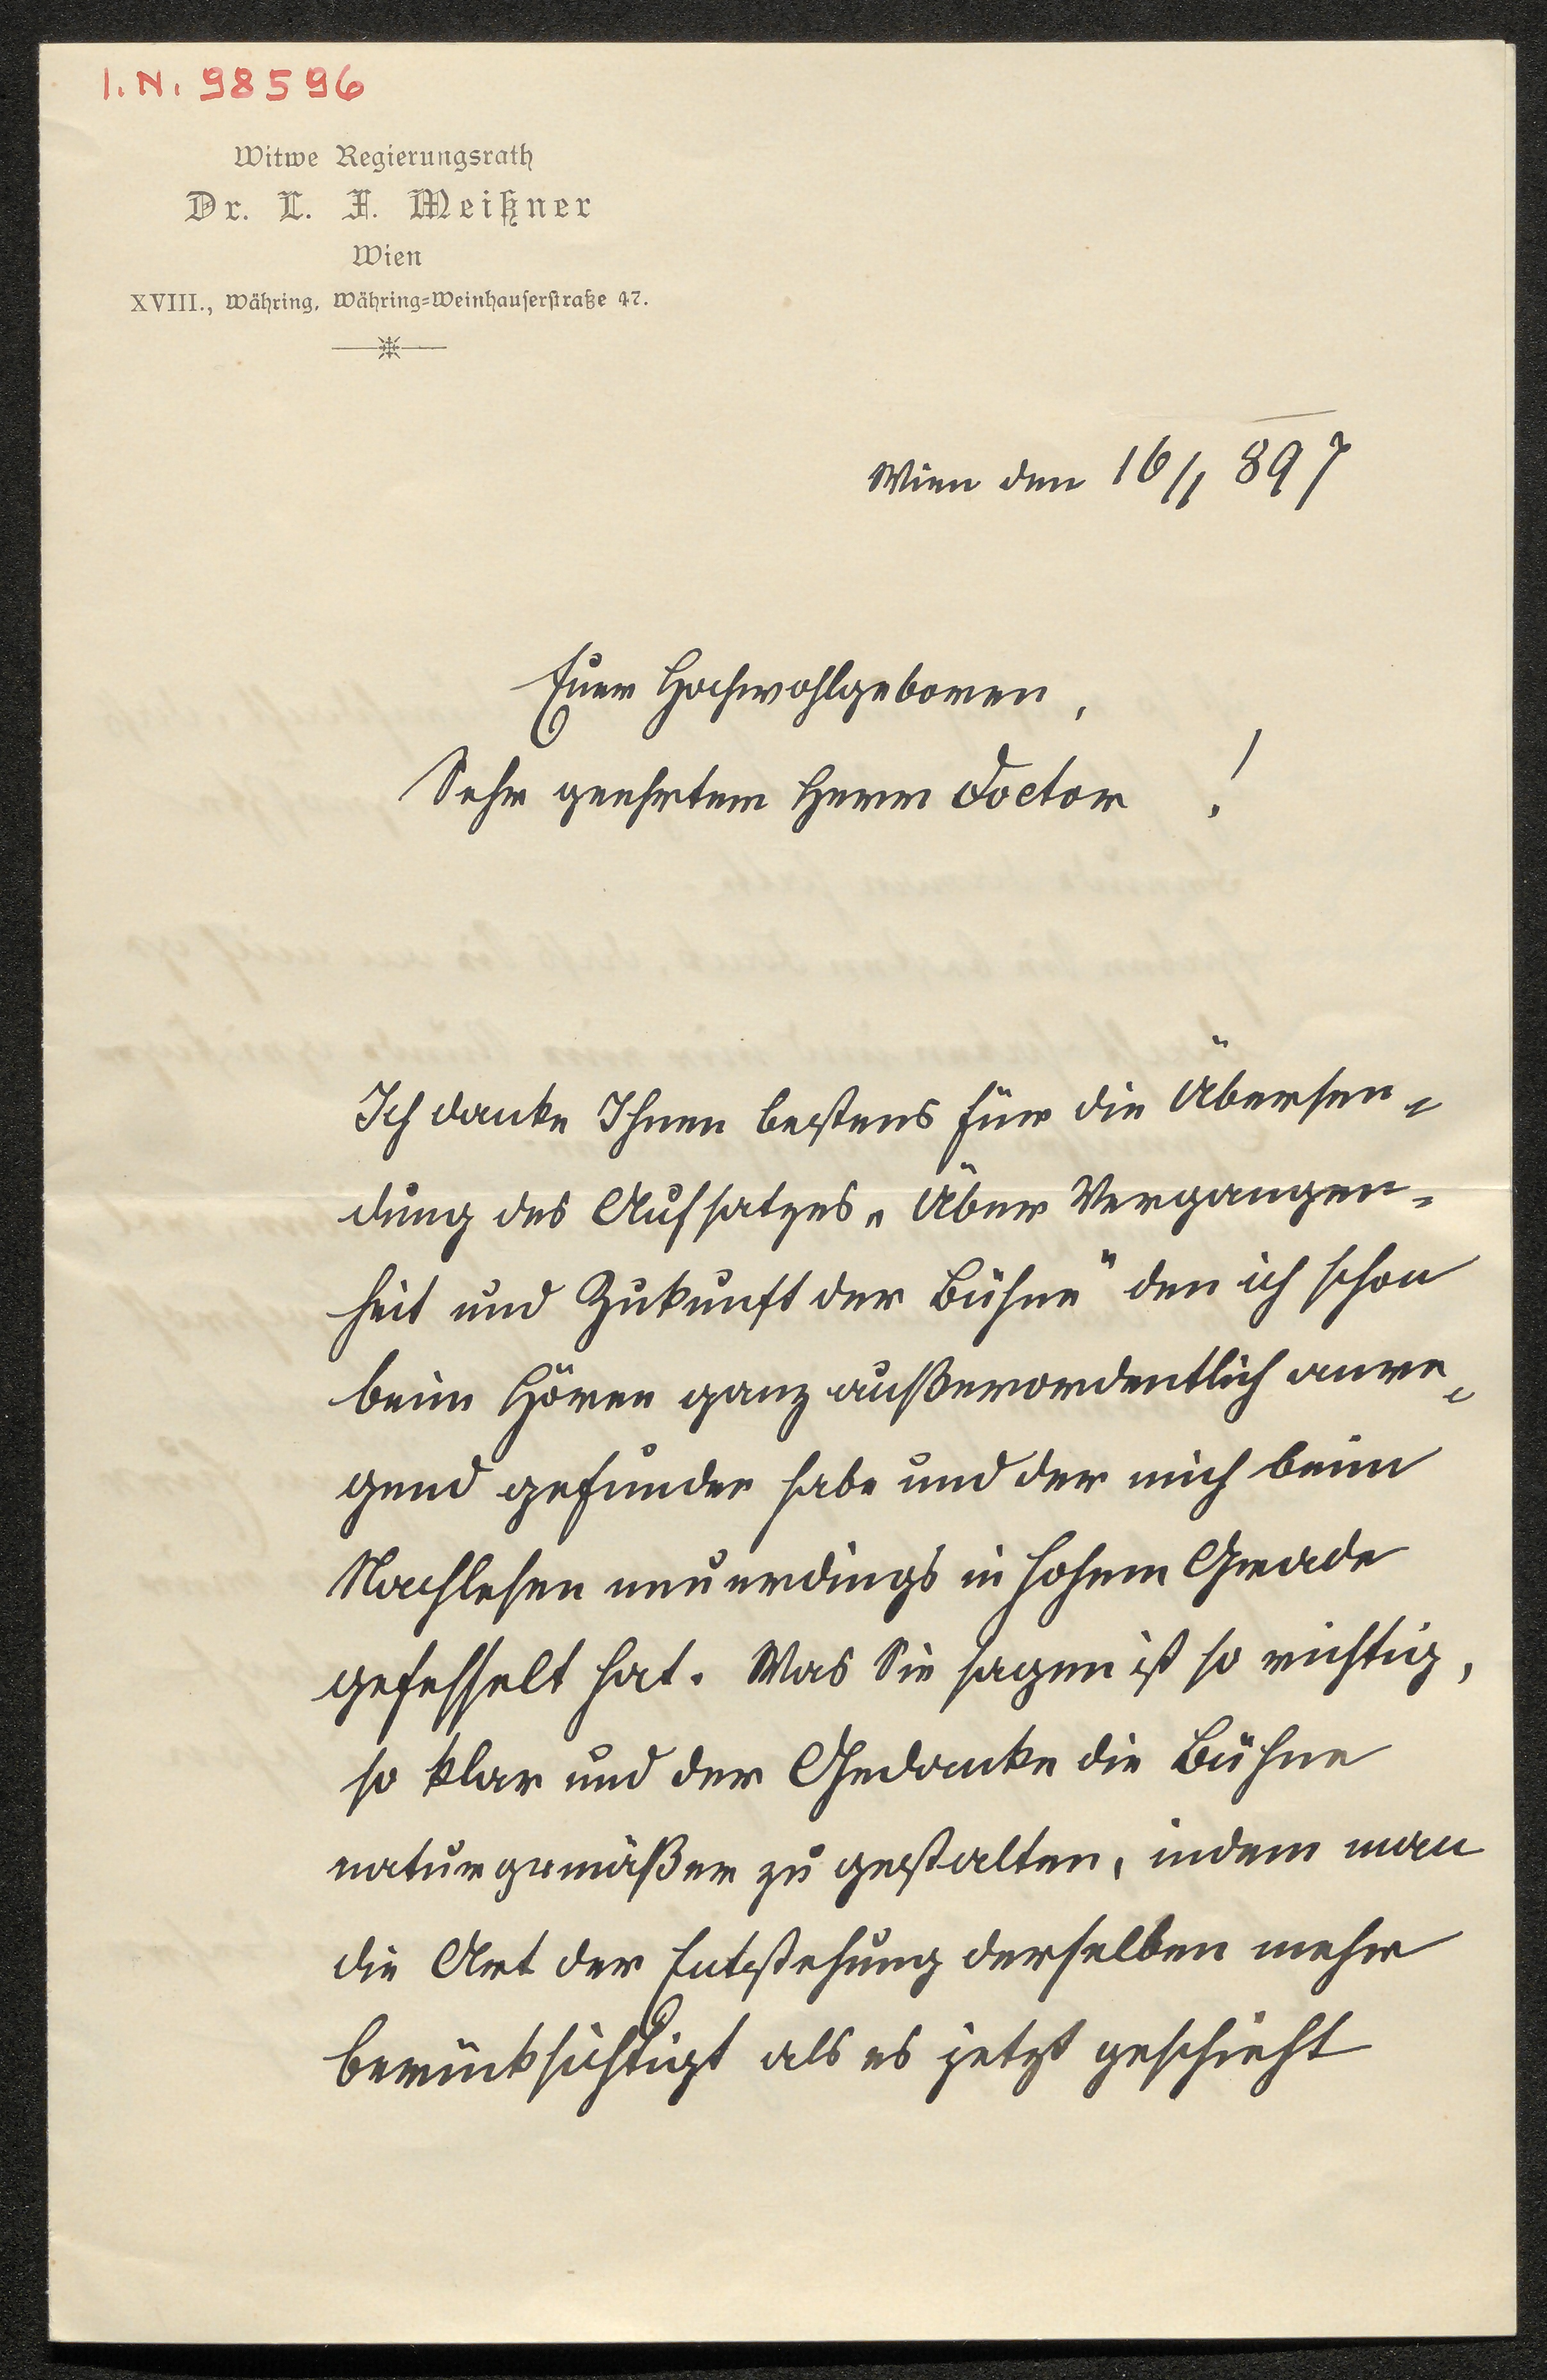 I.N. 98596
Witwe Regierungsrath
Dr. L. F. Meißner
Wien
XVIII., Währing, Währing=Weinhauserstraße 47.
Wien den 16/1 897
Euer Hochwohlgeboren,
Sehr geehrter Herr Doctor !
Ich danke Ihnen bestens für die Übersen„
dung des Aufsatzes „Über Vergangen=
heit und Zukunft der Bühne" den ich schon
beim Hören ganz außerordentlich anre„
gend gefunden habe und der mich beim
Nachlesen neuerdings in hohem Grade
gefesselt hat. Was Sie sagen ist so richtig,
so klar und der Gedanke die Bühne
naturgemäßer zu gestalten, indem man
die Art der Entstehung derselben mehr
berücksichtigt als es jetzt geschieht